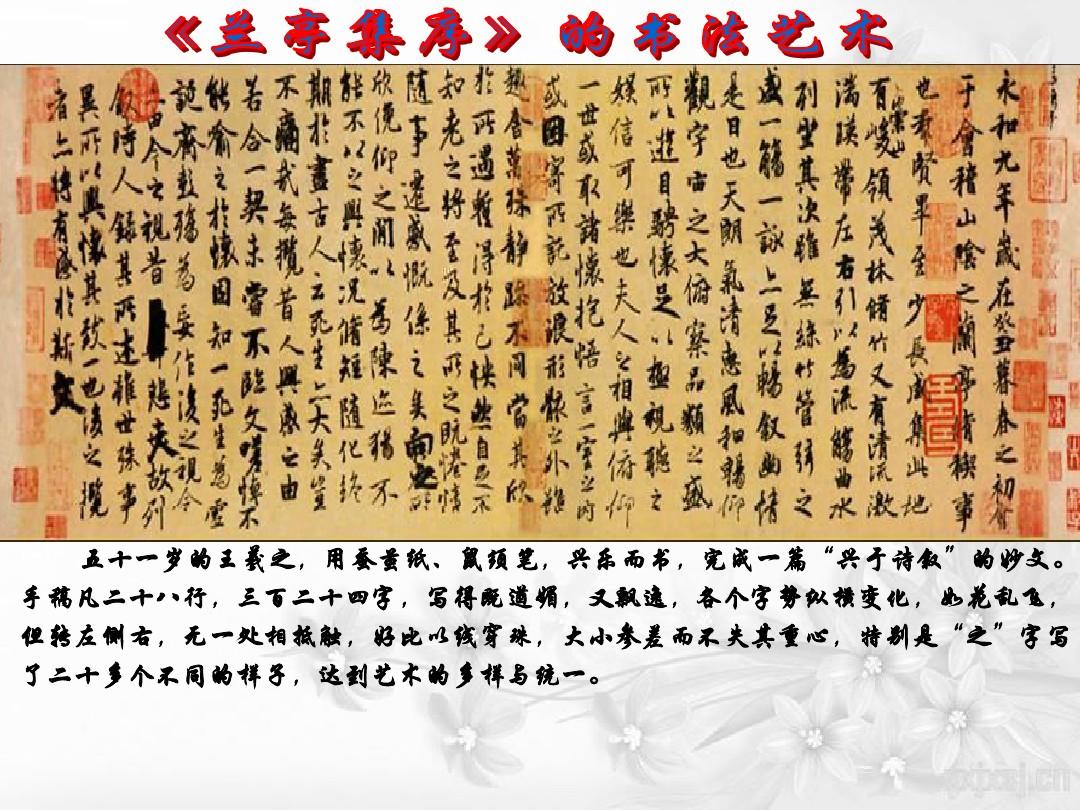 《兰亭集序》的书法艺术
永和九年歲在癸丑暮春之初會
于會稽山陰之蘭亭脩禊事
也羣賢畢至少長咸集此地
有崇山峻領茂林脩竹又有清流激
湍暎帶左右引以為流觴曲水
列坐其次雖無絲竹管弦之
盛一觴一詠亦足以暢敘幽情
是日也天朗氣清惠風和暢仰
觀宇宙之大俯察品類之盛
所以遊目騁懷足以極視聽之
娛信可樂也夫人之相與俯仰
一世或取諸懷抱悟言一室之內
或因寄所託放浪形骸之外雖
趣舍萬殊靜躁不同當其欣
於所遇暫得於己怏然自足不
知老之將至及其所之既惓情
隨事遷感慨係之矣向之所
欣俛仰之間以為陳迹猶不
能不以之興懷況脩短隨化終
期於盡古人云死生亦大矣豈
不痛哉每攬昔人興感之由
若合一契未嘗不臨文嗟悼不
能喻之於懷固知一死生為虛
誕齊彭殤為妄作後之視今
亦由今之視昔悲夫故列
敘時人錄其所述雖世殊事
異所以興懷其致一也後之攬
者亦將有感於斯文
五十一岁的王羲之，用蚕茧纸、鼠须笔，兴乐而书，完成一篇“兴于诗叙”的妙文。
手稿凡二十八行，三百二十四字，写得既道媚，又飘逸，各个字势纵横变化，如花乱飞，
但转左侧右，无一处相抵触，好比以线穿珠，大小参差而不失其重心，特别是“之”字写
了二十多个不同的样子，达到艺术的多样与统一。